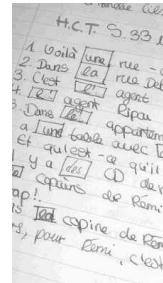 H.C.T. S. 33
1. Voilà une rue
2. Dans la rue De
3. C'est l' agent
4. L' agent Ripou
5. Dans l' appartem
a une table avec
Et qu'est-ce qu'il
y a des CD de
copains de Rémi
ap!.
copine de Rém
, pour Rémi, c'est